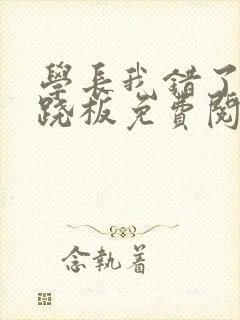 學長我錯了
蹺板免費閱
念執着